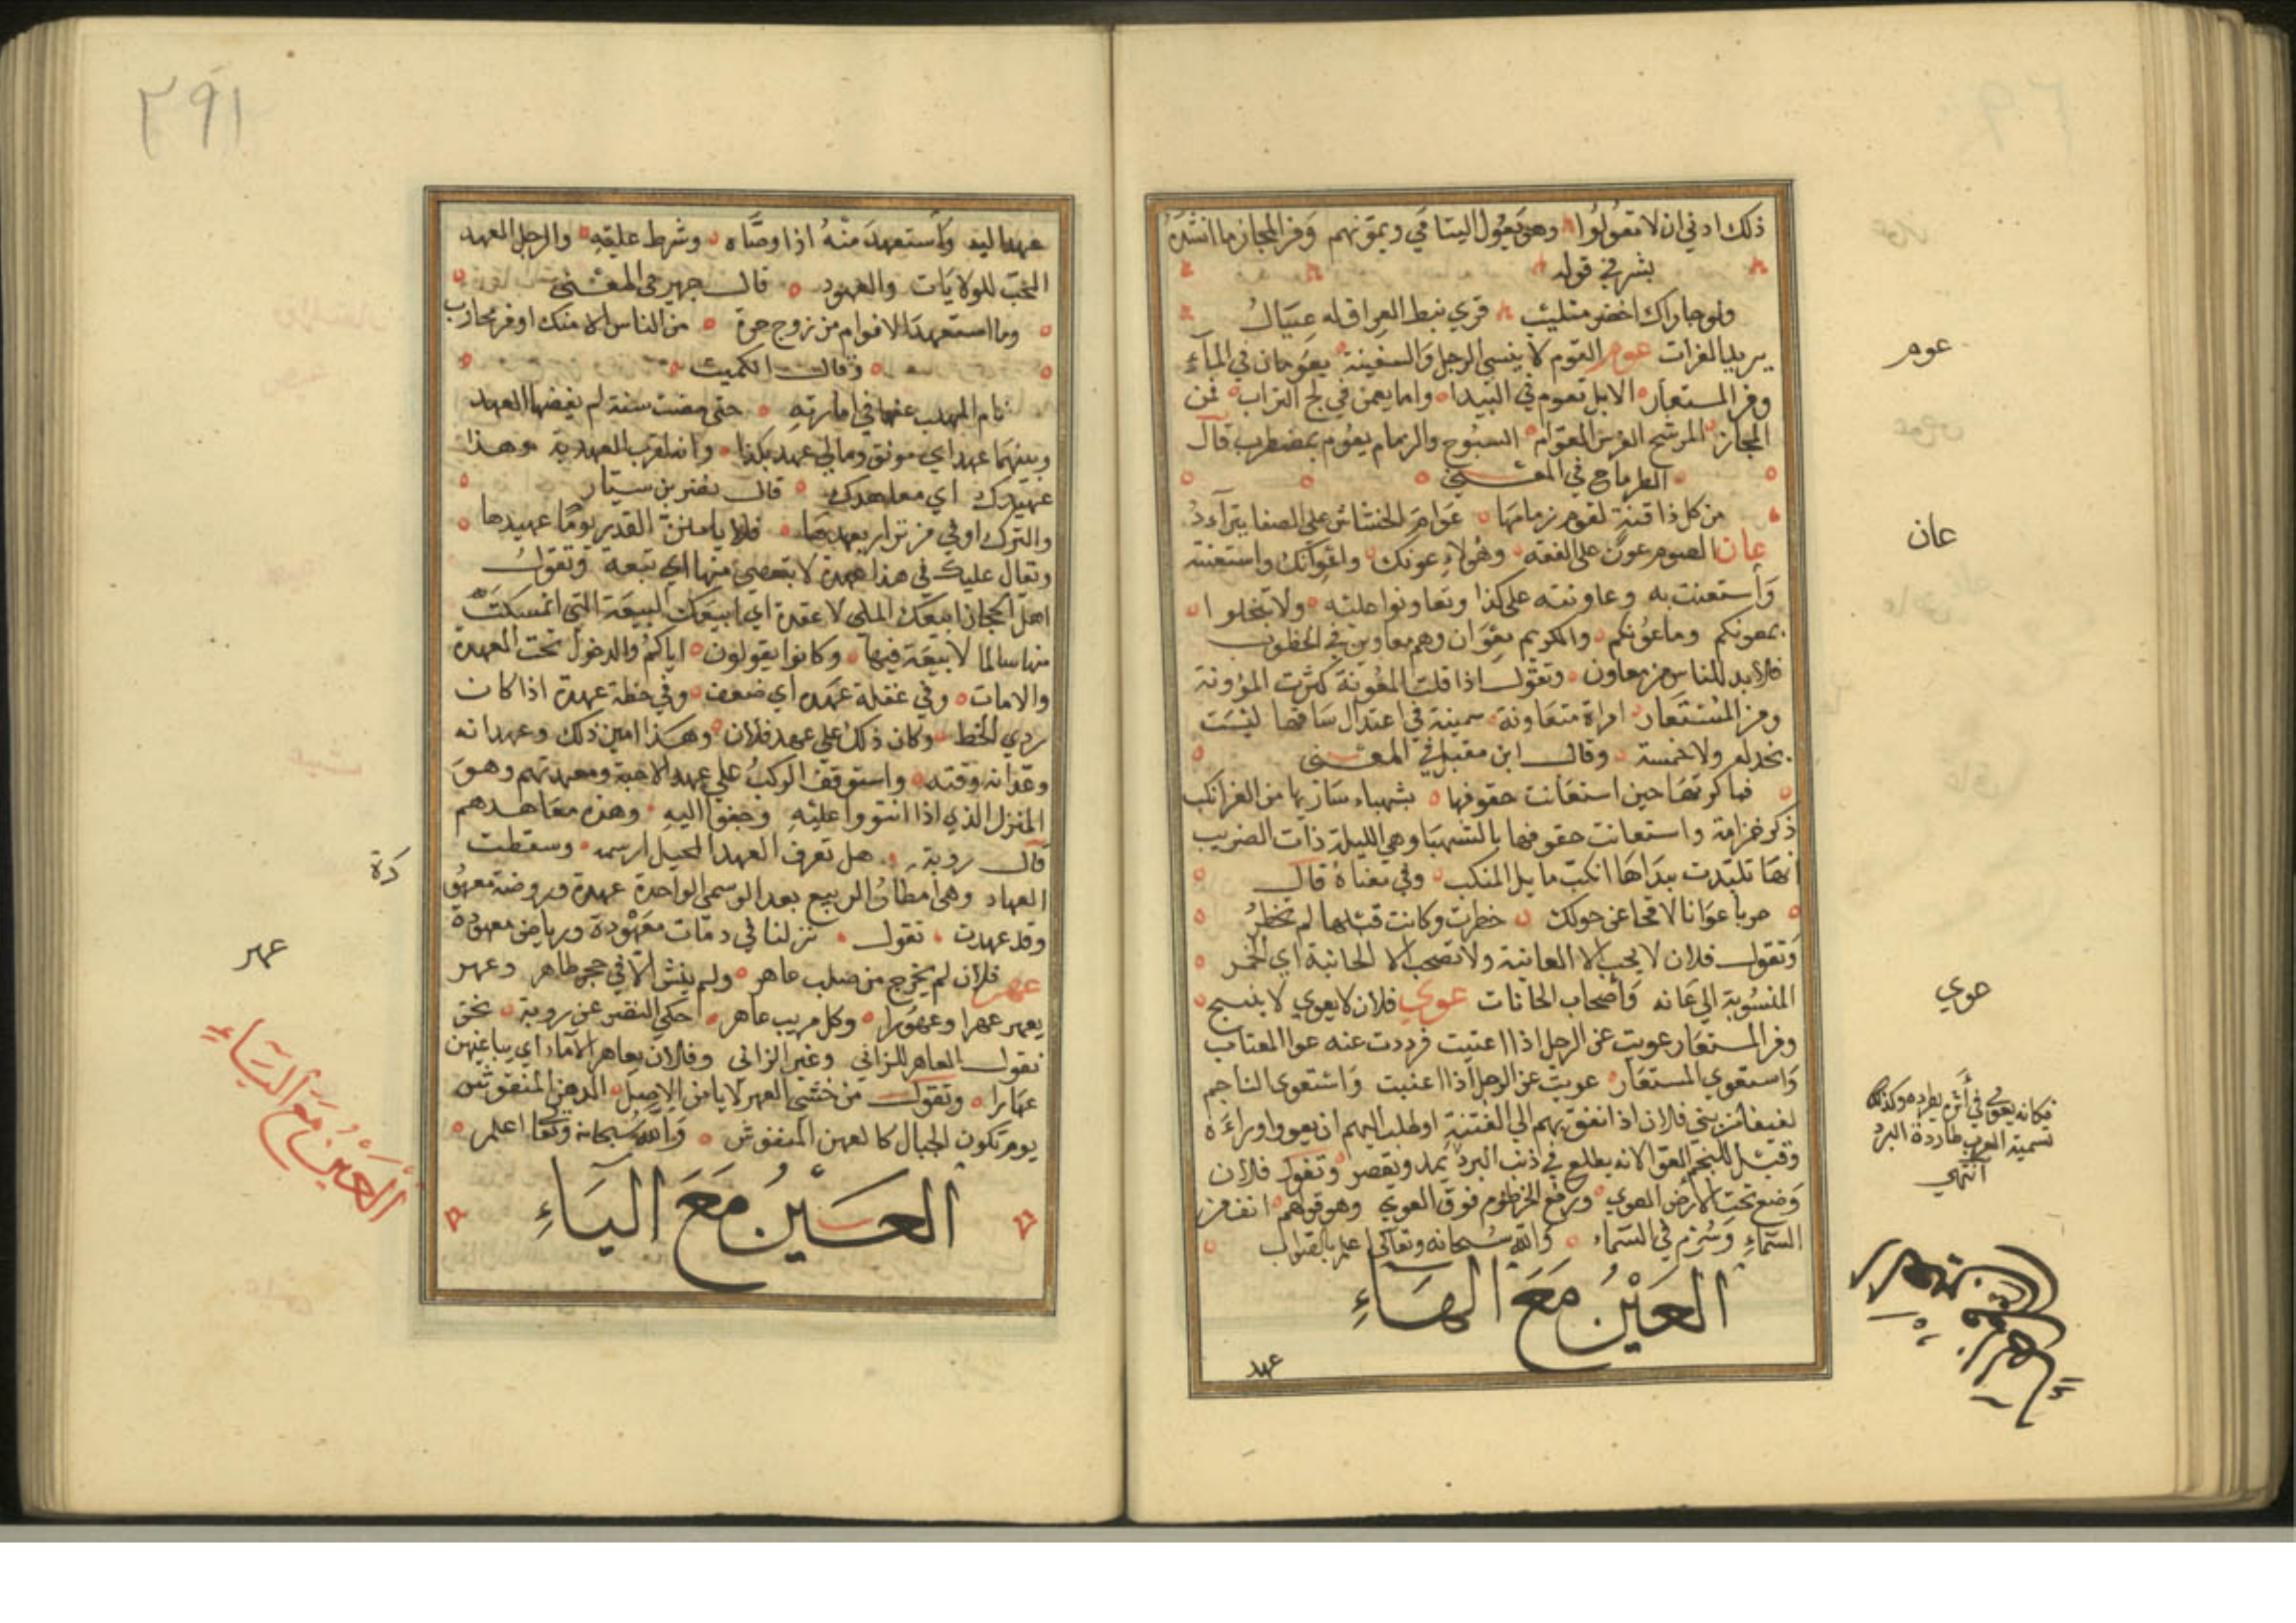 ذلك ادني ان لا تعولوا وهو يعول اليتامي ويمونهم ومن المجاز ما انشده
بشر في قوله
ولو جاراك اخضر متلئب قري نبط العراق له عيال
يريد الفرات عوم العوم لا ينسي الرجل والسفينة يعومان في الماء
ومن المستعار الابل تعوم في البيدا وامايعمن في لج التراب فمن
المجاز المرشح الفرس العوام السبوح والزمام يعوم بمضطرب قال
الطرماح في المعني
من كل ذاقنة لعوم زمامها عوام الخشاش علي الصفا يترآءد
عان الصوم عون علي الفقه وهولاء عونك واعوانك واستعنته
واستعنت به وعاونته علي كذا وتعاونوا عليه ولا تبخلوا
بمعونكم وماعونكم والكريم معوان وهم معاوين في الخطوب
فلا بد للناس من معاون وتقول اذا قلت المعونة كثرت المؤونة
ومن المستعار امراة متعاونة سمينة في اعتدال ساقها ليست
بخدله ولا خمسة وقال ابن مقبل في المعني
فباكرتها حين استعانت حقوفها بشهباء ساريها من القر انكب
ذكر خزامة واستعانت حقوفها بالشهبا وهي الليلة ذات الضريب
انها تلبدت بنداها انكب مايل المنكب وفي معناه قال
حربا عوانا لاقحا عن حولك خطرت وكانت قبلها لم تخطر
وتقول فلان لا يحب الا العانية ولا تصحب الا الحانية اي الخمر
المنسوبة الي عانه واصحاب الحانات عوي فلان لا يعوي لا ينبح
ومن المستعار عويت عن الرجل اذا اعتيت فرددت عنه عوا المعتاب
واستعوي المستعار عويت عن الرجل اذا اعتيت واستعوي الناجم
لفيفا من بني فلان اذا نعق بهم الي الفتنة او طلب اليهم ان يعووا وراءه
وقيل للنجم العوا لانه يطلع في اذنب البرد يمد ويقصر وتقول فلان
وضع تحت الارض العوي ورفع الخرطوم فوق العوي وهو قولهم انف في
السماء وسرم في السماء والله سبحانه وتعالي اعلم بالصواب
العين مع الهاء
عهد
عوم
عان
عوي
فكانه يعوي في اثره يطرده وكذلك
تسمية العرب طاردة البرد
انتهي
٢٩١
عهدا ليه واستعهد منه اذا وصاه وشرط عليه والرجل العهد
المحب للولايات والعهود قال جرير في المعني
وما استعهد الاقوام من زوج حرة من الناس الا منك او من محارب
وقال الكميت
نام المهلب عنها في امارته حتي مضت سنة لم يقضها العهد
وبينهما عهد اي موثق ومالي عهد بكذا وانه لقريب العهد به وهذا
عهيدك اي معاهدك قال نصر بن سيار
والترك اوفي من نزار بعهدها فلا يامنن الغدر يوما عهيدها
وتقال عليك في هذا عهدة لا تتعصي منها اي تبعة وتقول
اهل الحجاز ابيعك الملي لا عقدة اي ابيعك البيعة التي امسكت
منها سالما لا بيعة فيها وكانوا يقولون اياكم والدخول تحت العهدة
والامات وفي عقله عهده اي ضعف وفي خطه عهدة اذا كان
ردي الخط وكان ذلك علي عهد فلان وهذا امين ذلك وعهدانه
وعدانه وقته واستوقف الركب علي عهد الاحبة ومعهدتهم وهو
المنزل الذي اذا انتووا عليه رجعوا اليه وهذه معاهدهم
قال روبة هل تعرف العهد المحيل ارسمه وسقطت
العهاد وهي امطار الربيع بعد الوسمي الواحدة عهدة وروضة معهو
دة
وقد عهدت تقول نزلنا في دمثات معهودة ورياض معهودة
عهر فلان لم يخرج من صلب عاهر ولم ينش الا في حجر طاهر وعهر
يعهر عهرا وعهورا وكل مريب عاهر حكي النضر عن روبة نحن
نقول العاهر للزاني وغير الزاني وفلان يعاهر الاماء اي يباغيهن
عهارا وتقول من خشي العهر لا يامن الاصل المدهن المنفوش
يوم تكون الجبال كالعهن المنفوش والله سبحانه وتعالي اعلم
العين مع الياء
عهر
العين مع الياء